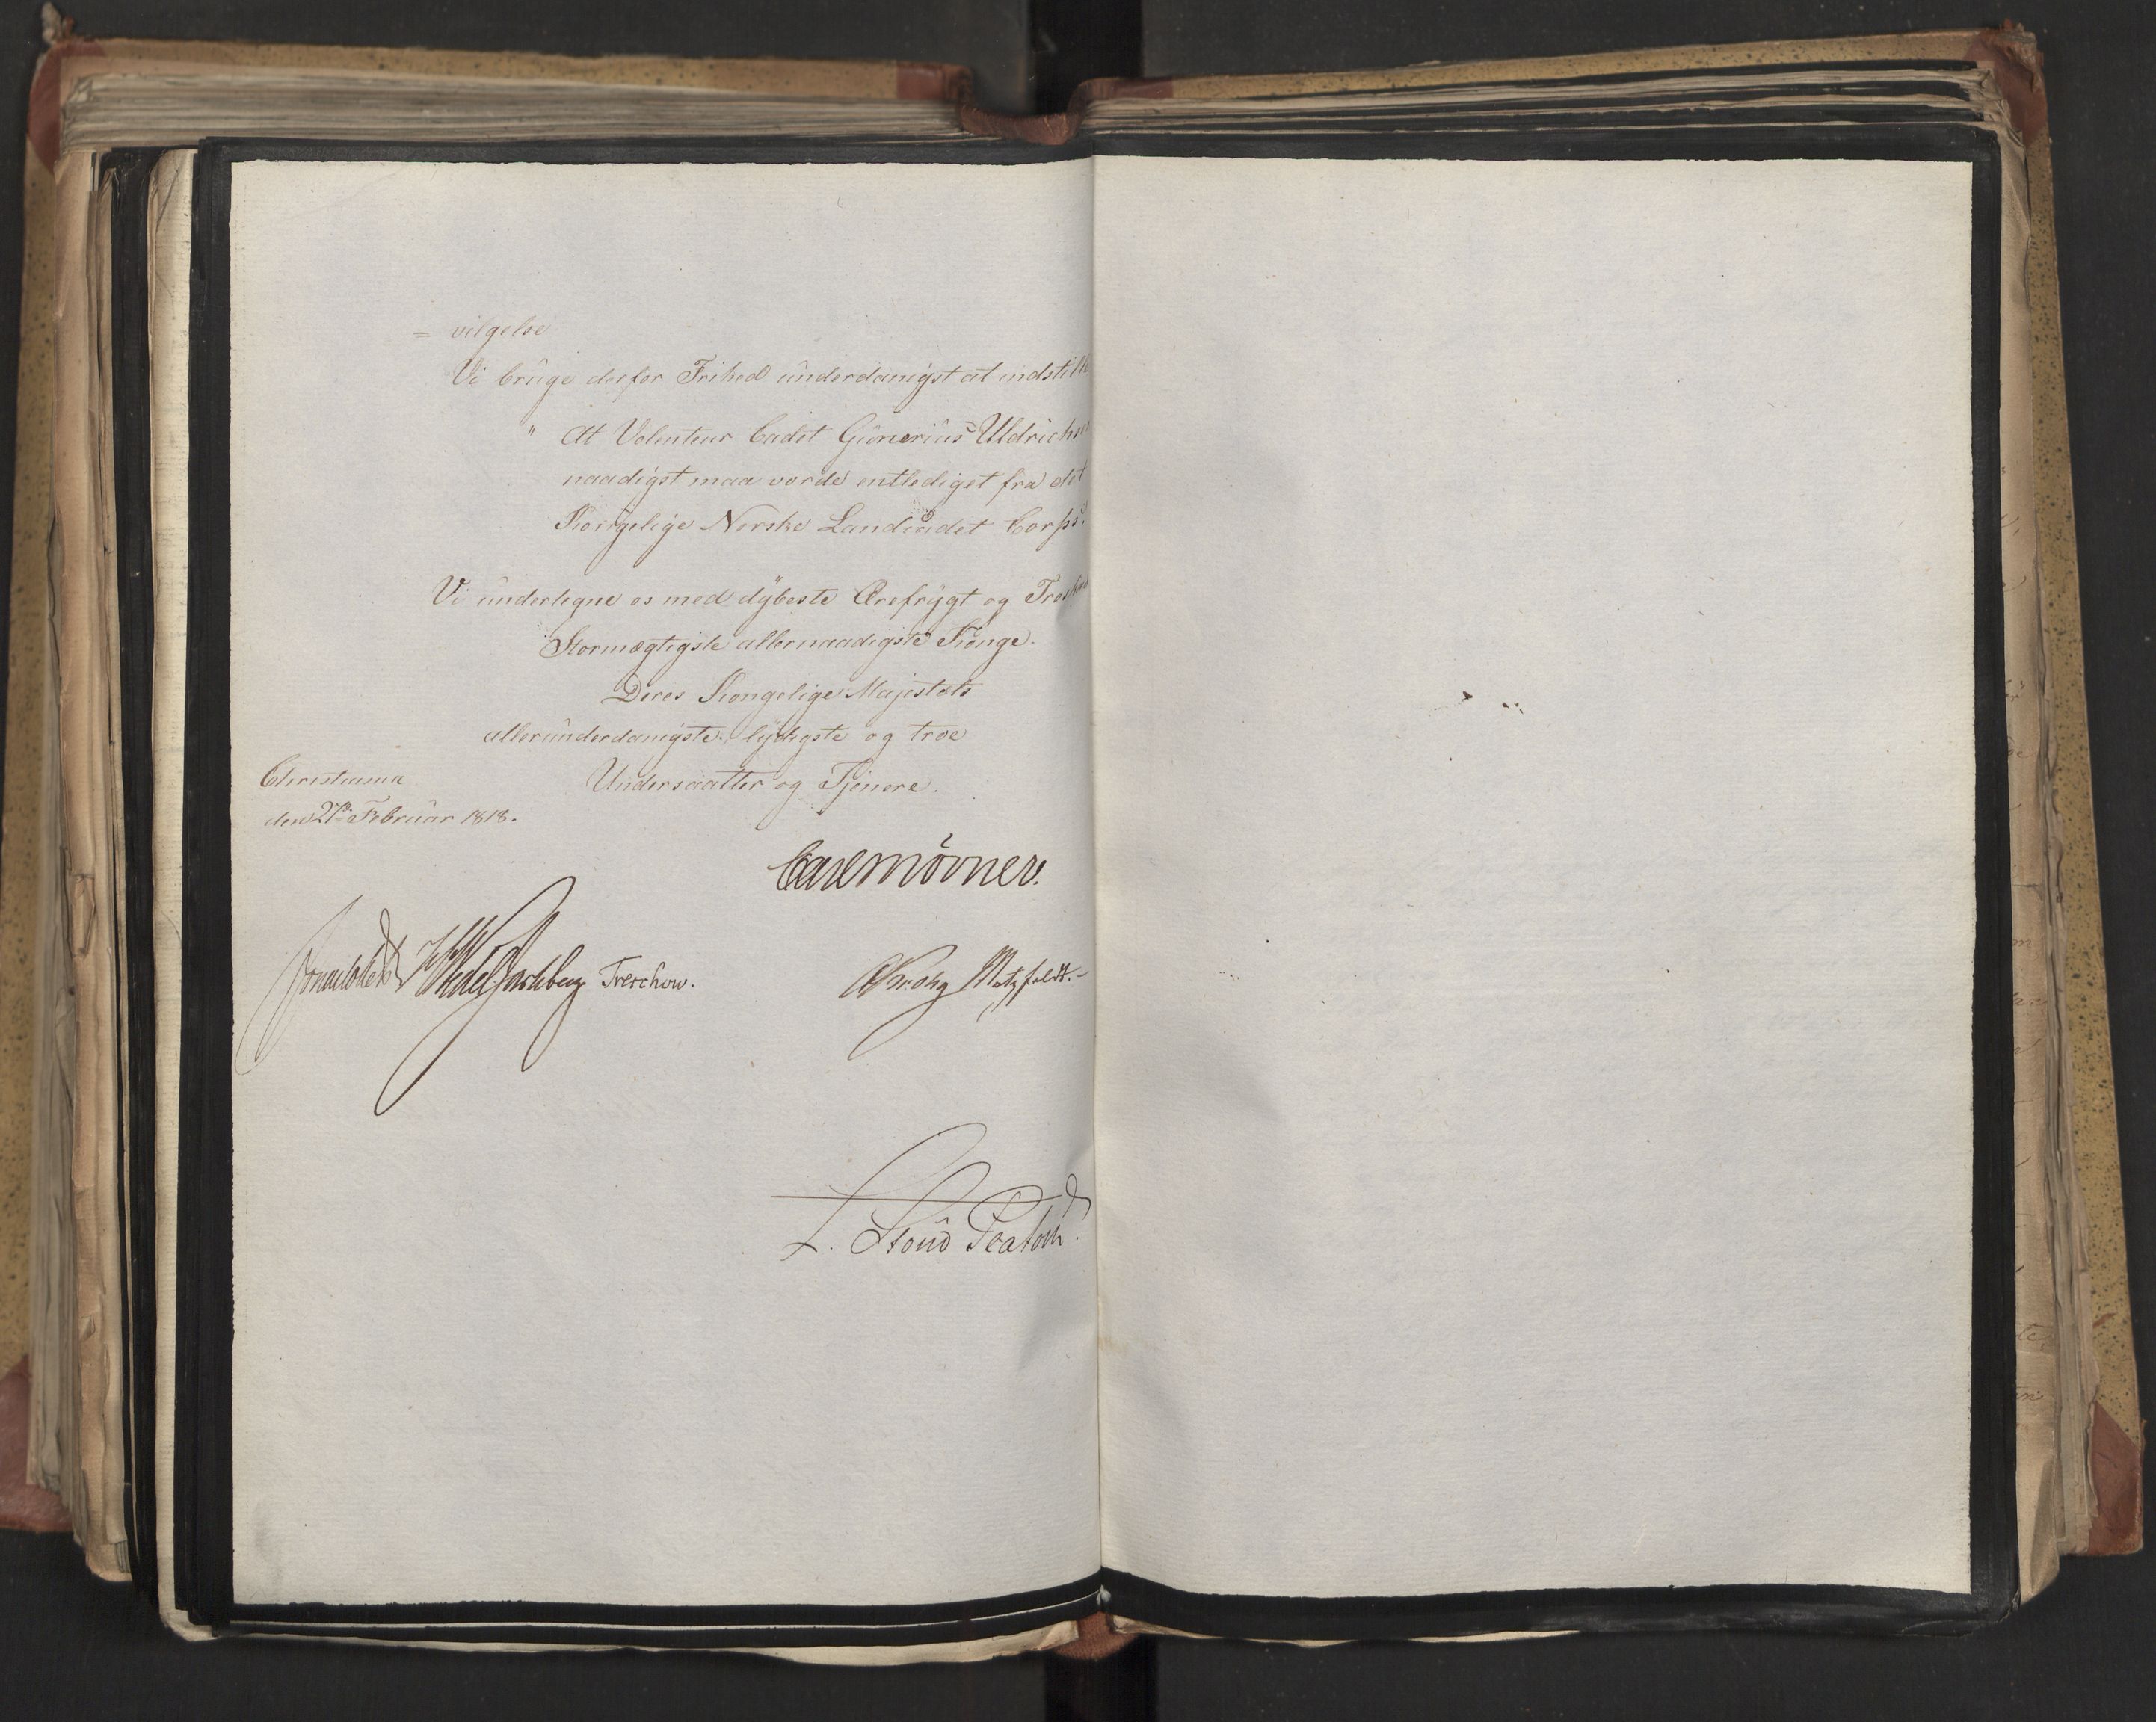 = vilgelse
Vi bruge derfor Frihed underdanigst at indstille
" At Volenteur Cadet Gunerius Uldrichsen
naadigst maa vorde entlediget fra det
Kongelige Norske Landcadet Corps.
Vi undertegne os med dybeste Ærefrygt og Troskab
Stormægtigste allernaadigste Konge.
Deres Kongelige Majestæts
allerunderdanigste, lydigste og troe
Undersaatter og Tjenere.
Christiania
den 27de Februar 1818.
Carl Mörner.
Sommerhielm HWedel Jarlsberg Treschow.
CKrohg Motzfeldt.
L. Stoud Platou.